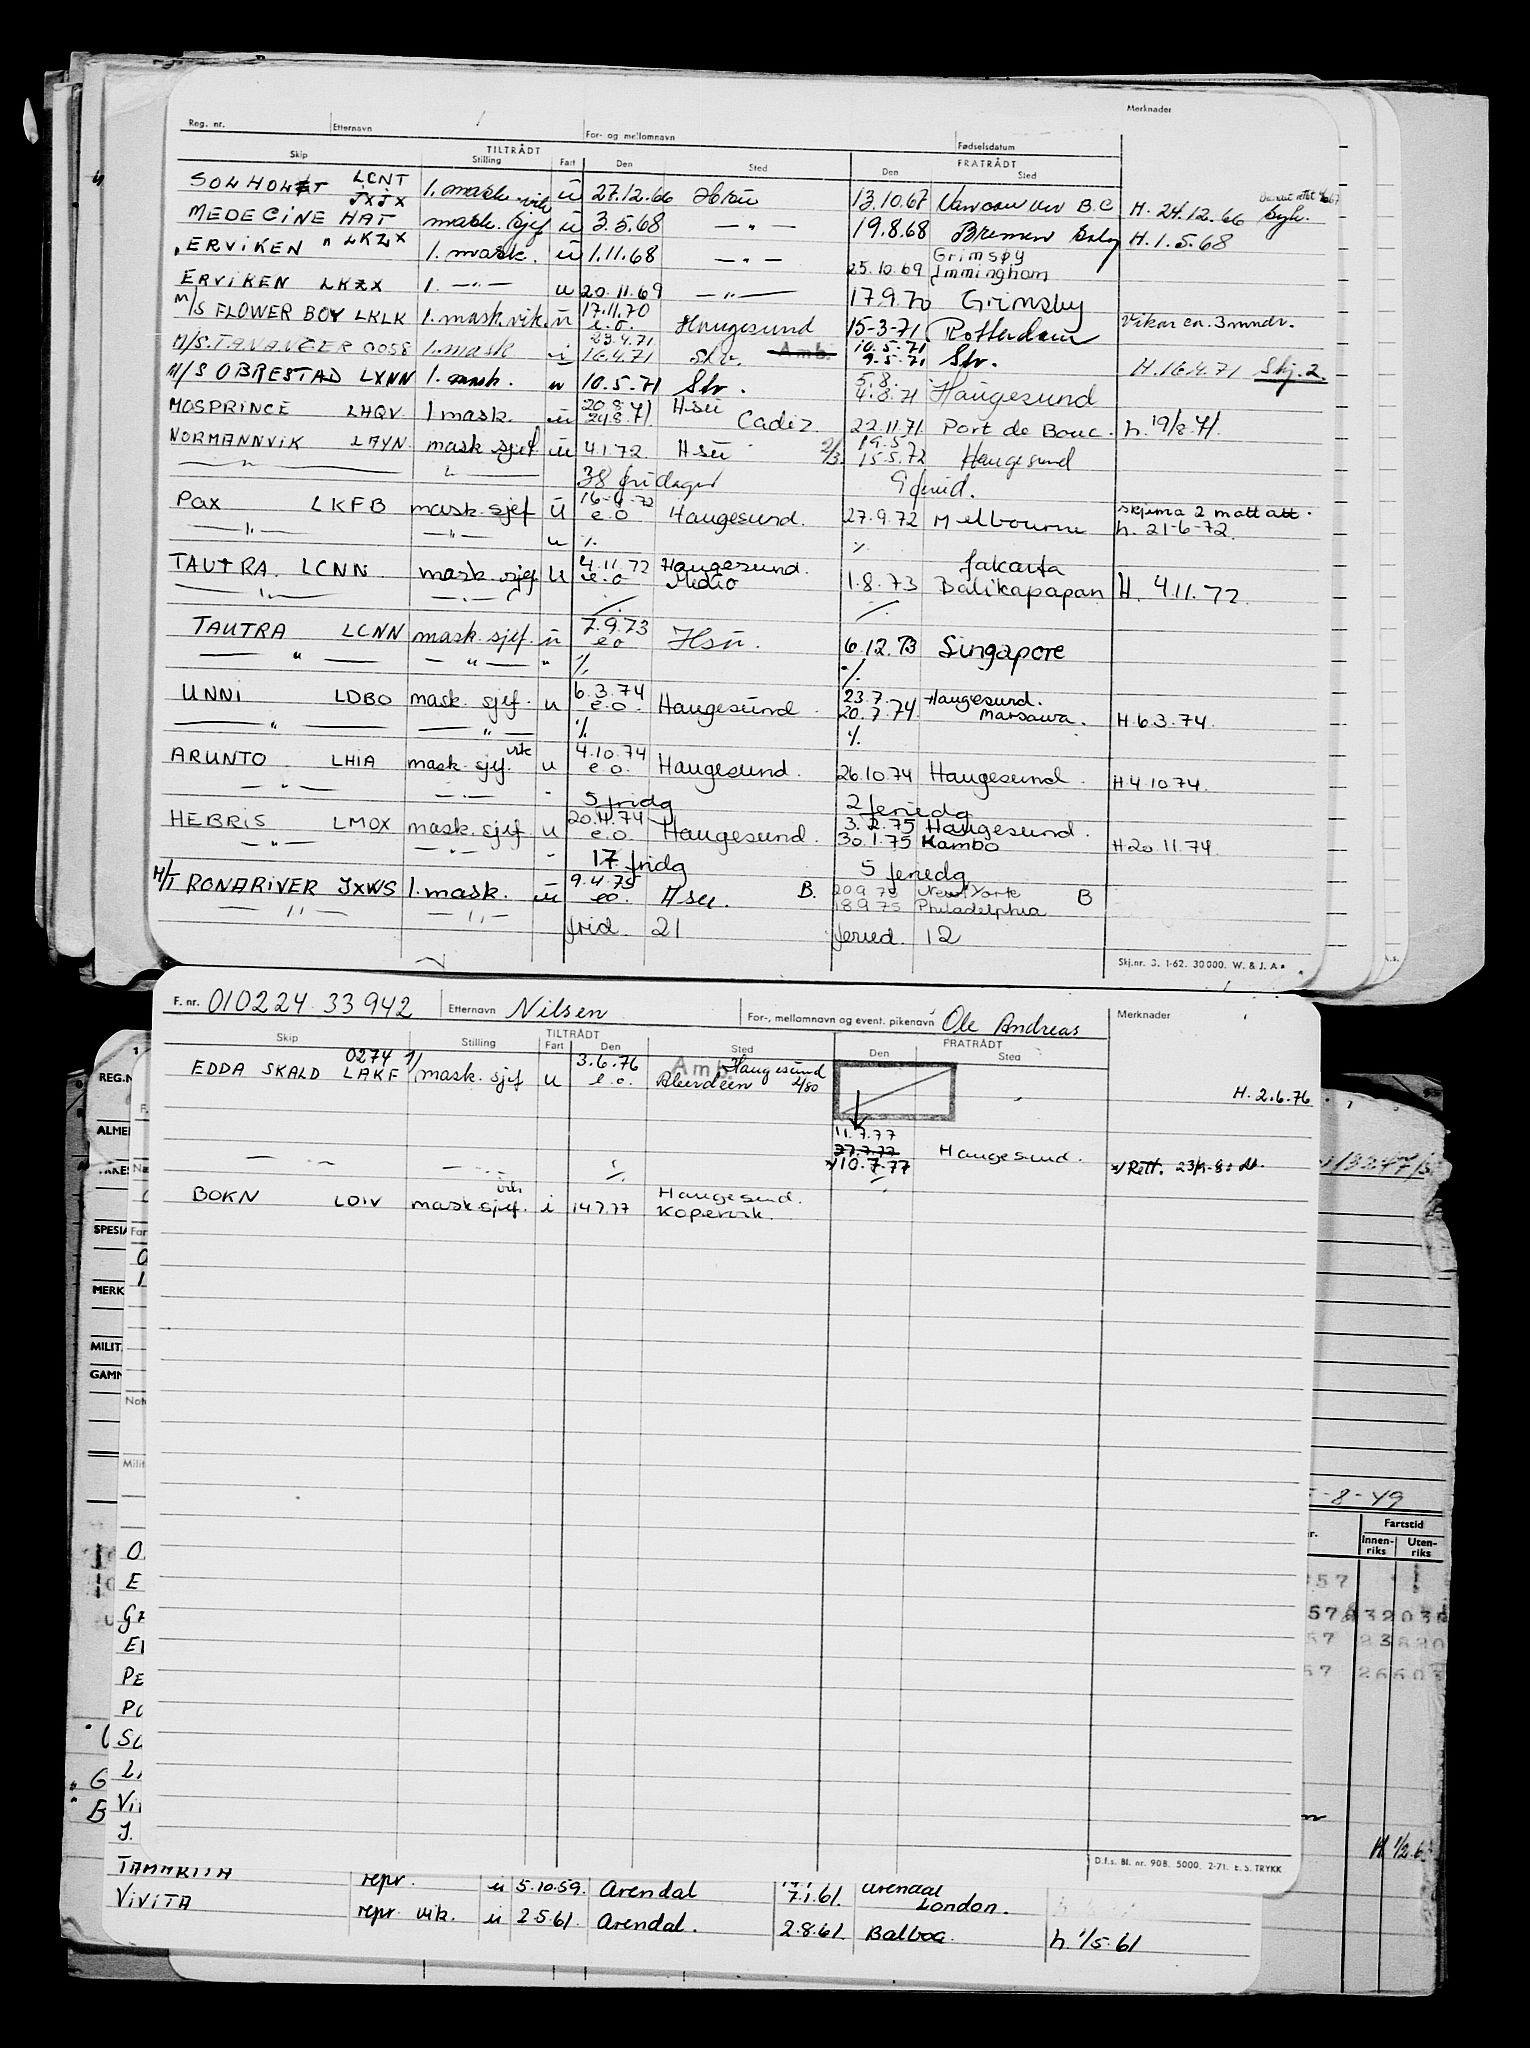 Reg. nr. Etternavn For- og mellomnavn Fødselsdatum Merknader
TILTRÅDT FRATRÅDT
Skip Stilling Fart Den Sted Den Sted
SOLHOLT LCNT 1. mask. vik ū 27.12.66 13.10.67 Vancouver B.C. H. 24.12.66
JXJX
MEDECINE HAT mask. sjef ū 3.5.68 — " — 19.8.68 Bremen H. 1.5.68
"ERVIKEN" LKZX 1. mask. ū 1.11.68 — " — 25.10.69 Grimsby Immingham
ERVIKEN LKZX 1. — " — u 20.11.69 — " — 17.9.70 Grimsby
M/S FLOWER BOY LKLK 1. mask. vik. ū 17.11.70 e.o. Haugesund 15-3-71 Rotterdam Vikar ca. 3 mndr.
M/S. TANANGER OOSS 1. mask i 23.4.71 16.4.71 Str. Amb. 10.5.71 9.5.71 Str. H. 16.4.71 Skj. 2.
M/S OBRESTAD LXNN 1. mask. u 10.5.71 Str. 5.8. 4.8.71 Haugesund
MOSPRINCE LHQV 1 mask. ū 20.8.71 24.8.71 Hsu Cadiz 22.11.71 Port de Bouc. h. 19/8-71.
NORMANNVIK LAYN. mask sjef ū 4.1.72. Hsu 2/3. 19.5 15.5.72 Haugesund
— " — — " — 38 fridager 9 feried.
PAX LKFB mask. sjef ū 16-6-72 e.o Haugesund. 27.9.72 Melbourne skjema 2 mott att. h. 21-6-72.
— " — — " — u % %
TAUTRA. LCNN mask. sjef u 4.11.72 e.o Haugesund. Midio 1.8.73 Jakarta Balikapapan H. 4.11.72.
— " — — " — % %
TAUTRA LCNN mask. sjef. ū 7.9.73 eo Hsu. 6.12.73 Singapore
— " — — " — " % %
UNNI LDBO mask. sjef. u 6.3.74 e.o. Haugesund. 23.7. 20.7.74. Haugesund. Marsawa. H. 6.3.74.
— " — — " — % %
ARUNTO LHIA mask. sjef. vik u 4.10.74 e.o. Haugesund. 26.10.74 Haugesund. H. 4.10.74.
— " — — " — - 5 fridg 2 feriedg
HEBRIS LMOX mask. sjef u 20.11.74 e.o. Haugesund. 3.2.75 Haugesund. 30.1.75 Kambo H. 20.11.74.
— " — — " — - 17 fridg 5 feriedg
M/T RONARIVER JXWS 1. mask. ū 9.4.75 eo. Hsu. B. 20.9.75 New York 18.9.75 Philadelphia B
— " — — " — frid. 21 feried. 12
Skj.nr. 3. 1-62. 30000. W. & J. A.
F. nr. 010224 33942 Etternavn Nilsen For-, mellomnavn og event. pikenavn Ole Andreas Merknader
TILTRÅDT FRATRÅDT
Skip Stilling Fart Den Sted Den Sted
EDDA SKALD 0274 LAKF 1/ mask. sjef u 3.6.76 e.o. Amb. Haugesund Aberdeen 2/80 H. 2.6.76
11.7.77
27.7.77
— " — — " — % x/10.7.77 Haugesund. x/ Rett. 23/1-80
%
BOKN LDIV mask sjef. vik i 14.7.77 Haugesund. Kopervik.
D.f.s. Bl. nr. 90B. 5000. 2-71. E.S. TRYKK
REG.N
ALMEI
SPESIA
MERK
MILIT.
GAMN
Note
Milit
-8-49
Fartstid
Innen-riks Uten-riks
O.
E
GR
EI
PE
PO
SO
L
Vi
J.
H 1/2.6
TAMARITA repr. u 5.10.59. Arendal 7.1.61. Arendal London.
VIVITA repr. vik. u 2.5.61. Arendal. 2.8.61. Balboa. h. 1/5.61